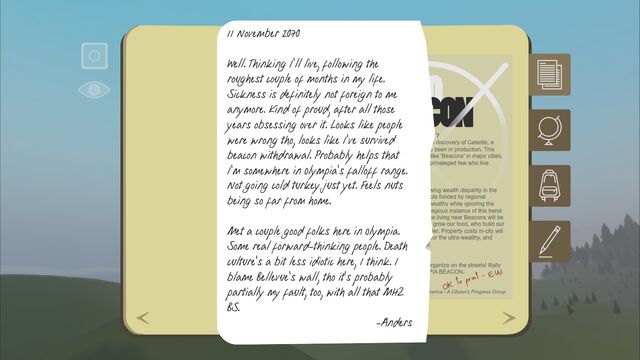 11 November 2070
Well. Thinking I'll live, following the
roughest couple of months in my life.
Sickness is definitely not foreign to me
anymore. Kind of proud, after all those
years obsessing over it. Looks like people
were wrong tho, looks like I've survived
beacon withdrawal. Probably helps that
I'm somewhere in olympia's falloff range.
Not going cold turkey just yet. Feels nuts
being so far from home.
Met a couple good folks here in olympia.
Some real forward-thinking people. Death
culture's a bit less idiotic here, I think. I
blame Bellevue's wall, tho it's probably
partially my fault, too, with all that MHZ
BS.
-Anders
CON
?
discovery of Celerite, a
been in production. This
like 'Beacons' in major cities,
priveleged few who live
wing wealth disparity in the
ols funded by regional
wealthy while ignoring the
regious instance of this trend
e living near Beacons will be
grow our food, who build our
er. Property costs in-city will
or the ultra-wealthy, and
organize on the streets! Rally
PIA BEACON.
OK to print - EW
merica - A Citizen's Progress Group